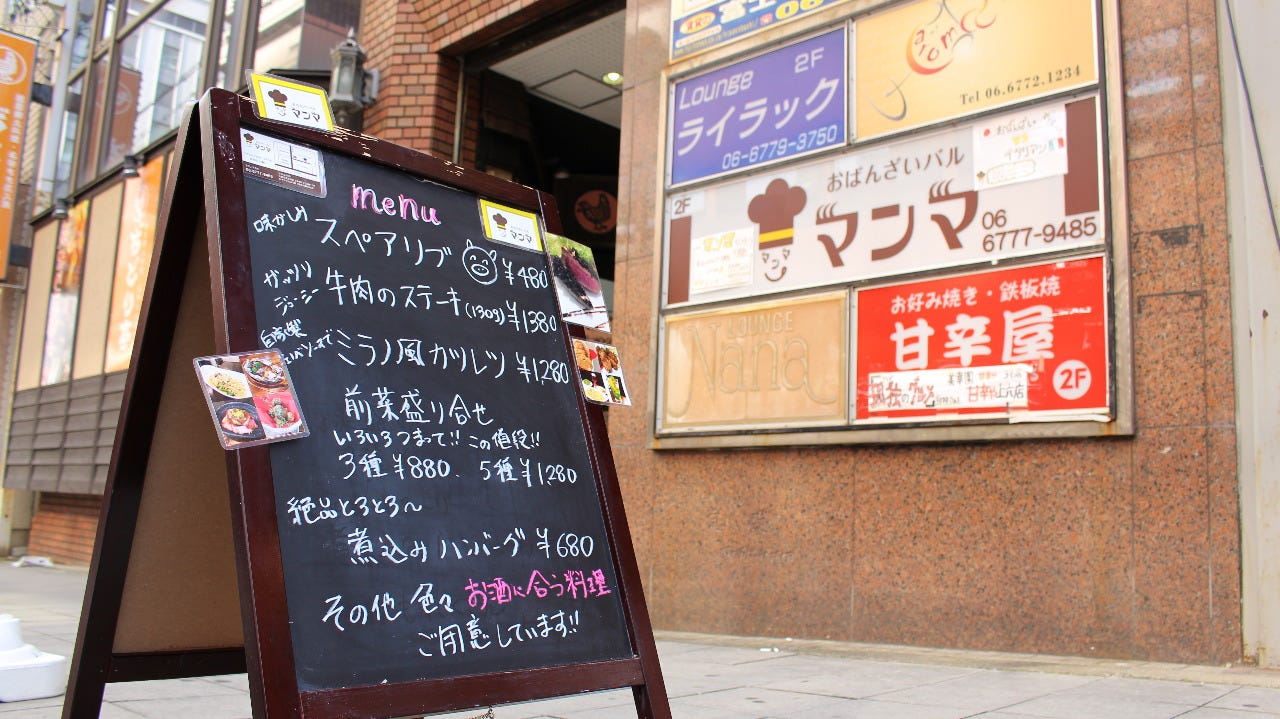 マンマ
menu
マンマ
味かしみ
スペアリブ ¥480
ガッツリ
ジューシー
牛肉のステーキ(130g) ¥1380
自家製
ミラノ風カツレツ ¥1,280
前菜盛り合せ
いろいろつまって!! この値段!!
3種 ¥880、5種 ¥1,280
絶品とろとろ〜
煮込みハンバーグ ¥680
その他 色々 お酒に合う料理
ご用意しています!!
Lounge 2F
ライラック
06-6779-3750
Tel 06.6772.1234
2F
おばんざいバル
マンマ
06
6777-9485
おばんざい
イタリアン
マンマ
LOUNGE
Nana
お好み焼き・鉄板焼
甘辛屋
2F
孤独のグルメ
甘辛や上六店